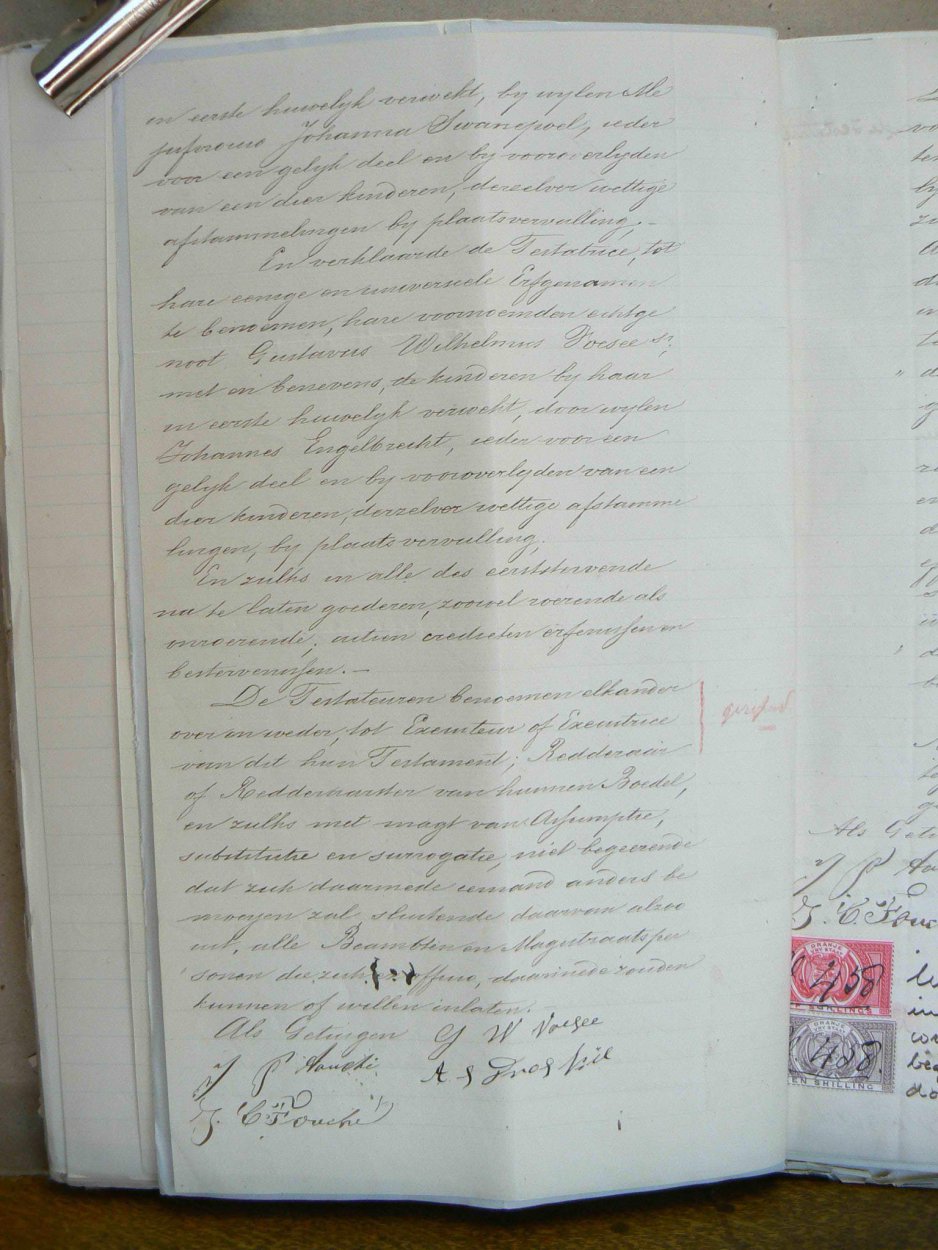 in eerste huwelyk verwekt, by wylen Me
jufvrouw Johanna Swanepoel, ieder
voor een gelyk deel en by vooroverlyden
van een dier kinderen, derzelver wettige
afstammelingen by plaatsvervulling. –
En verklaarde de Testatrice, tot
hare eenige en universeele Erfgenamen
te benoemen, hare voornoemden echtge
noot Gustavus Wilhelmus Voesee Sr,
met en benevens, de kinderen by haar
in eerste huwelyk verwekt, door wylen
Johannes Engelbrecht, ieder voor een
gelyk deel en by vooroverlyden van een
dier kinderen, derzelver wettige afstamme
lingen, by plaatsvervulling.
En zulks in alle des eerststervende
na te laten goederen, zoowel roerende als
onroerende, actien credieten erfenissen en
bestervenissen. –
De Testateuren benoemen elkander
over en weder, tot Executeur of Executrice
van dit hun Testament; Redderaar
of Redderaarster van hunnen Boedel,
en zulks met magt van Assumptie,
substitutie en surrogatie, niet begeerende
dat zich daarmede iemand anders be
moeyen zal, sluitende daarvan alzoo
uit, alle Beambten en Magistraatsper
sonen die zich ex officio, daarmede zouden
kunnen of willen inlaten.
Als Getuigen G W Voesee
J P Fouché
J. C Fouché
Als Getu
J P
J. C Fouc
ORANJE
VRY STAAT
458
SHILLINGS
ORANJE
VRY STAAT
458
EEN SHILLING